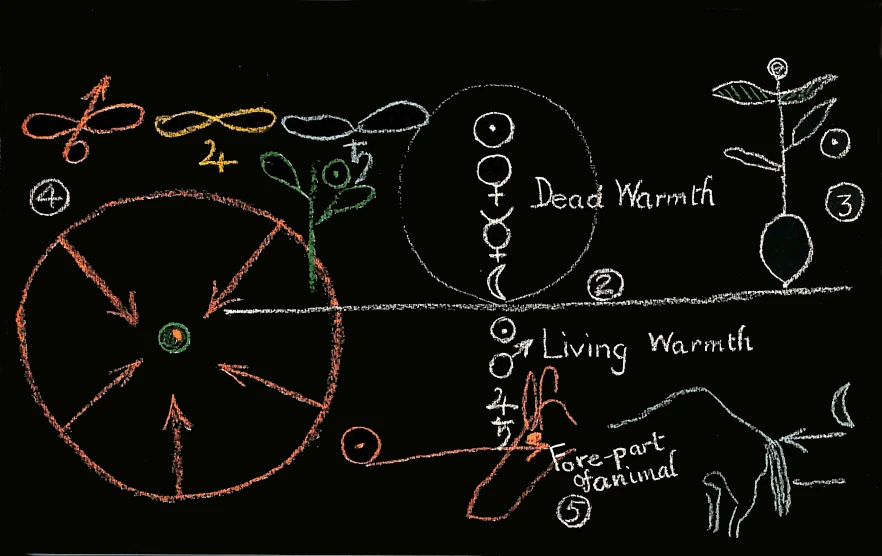 ♃
♄
☉
④
☉
♀
☿
☾
Dead Warmth
②
☉
③
☉
♂
♃
♄
Living Warmth
☉
Fore-part
of animal
⑤
☾